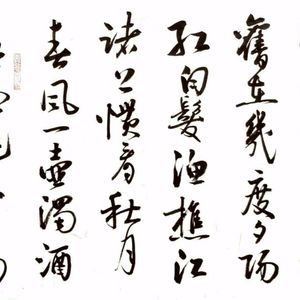 舊在幾度夕陽
紅白髮漁樵江
渚上慣看秋月
春風一壺濁酒